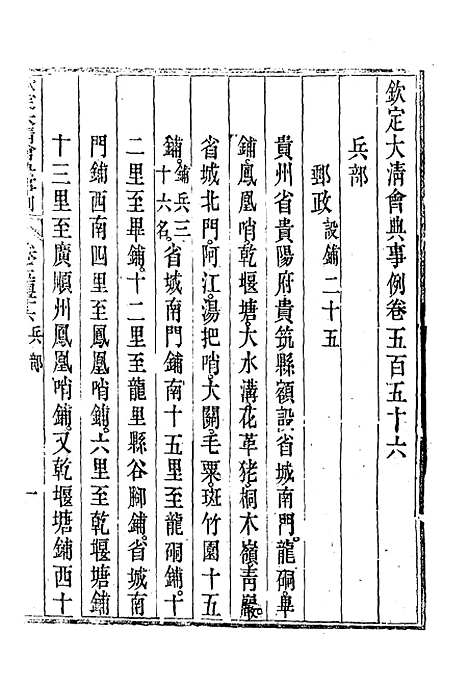 欽定大清會典事例卷五百五十六
兵部
郵政設鋪二十五
貴州省貴陽府貴筑縣額設省城南門。龍硐。阜
鋪。鳳凰哨。乾堰塘。大水溝。花革猪。桐木嶺。青巖。
省城北門。阿江。湯把哨。大關。毛粟。斑竹園十五
鋪。鋪兵三十六名。省城南門鋪南十五里至龍硐鋪。十
二里至畢鋪。十二里至龍里縣谷腳鋪。省城南
門鋪西南四里至鳳凰哨鋪。六里至乾堰塘鋪。
十三里至廣順州鳳凰哨鋪。又乾堰塘鋪西十
兵部
一